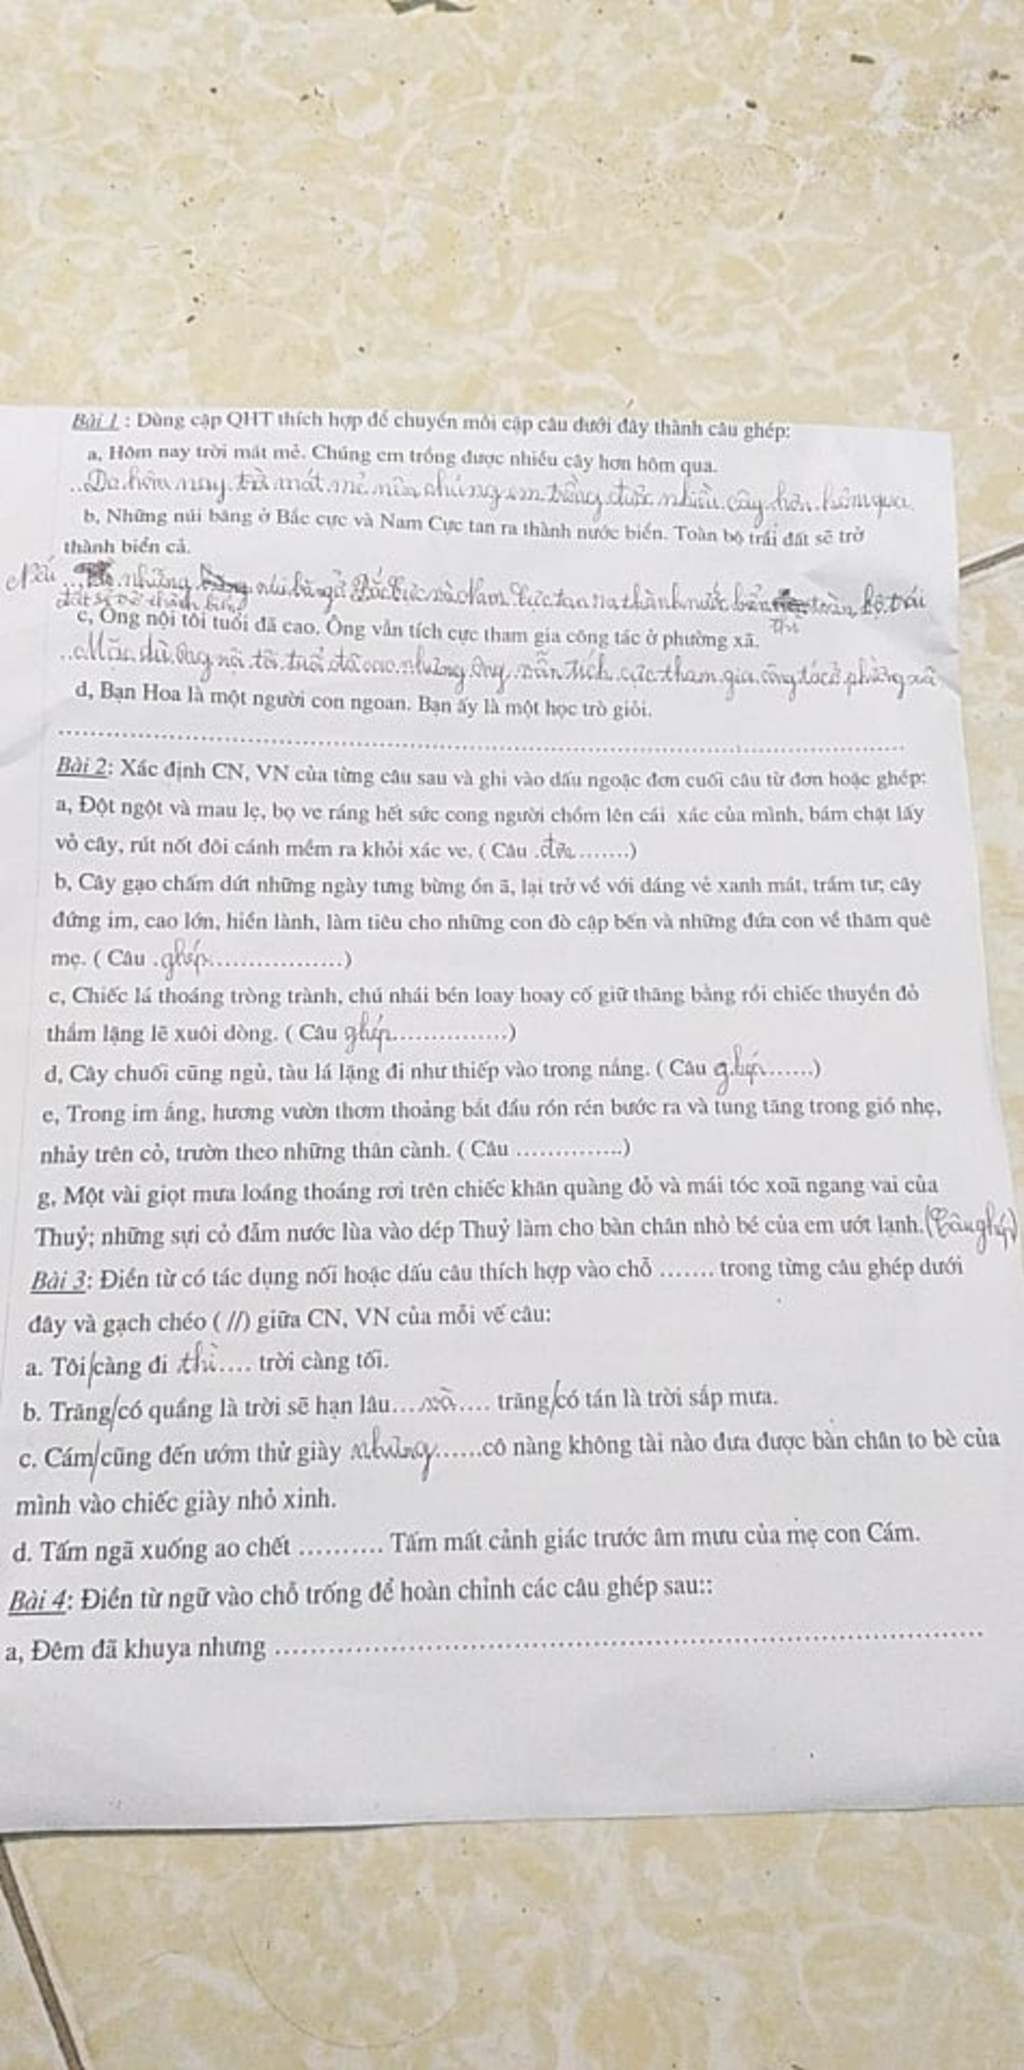 Bài 1 : Dùng cặp QHT thích hợp để chuyển mỗi cặp câu dưới đây thành câu ghép:
a, Hôm nay trời mát mẻ. Chúng em trồng được nhiều cây hơn hôm qua.
Do hôm nay trời mát mẻ nên chúng em trồng được nhiều cây hơn hôm qua.
b, Những núi băng ở Bắc cực và Nam Cực tan ra thành nước biển. Toàn bộ trái đất sẽ trở
thành biển cả.
Nếu những núi băng ở Bắc Cực và Nam Cực tan ra thành nước biển toàn bộ trái
thì
đất sẽ trở thành
c, Ông nội tôi tuổi đã cao. Ông vẫn tích cực tham gia công tác ở phường xã.
..Mặc dù ông nội tôi tuổi đã cao nhưng ông vẫn tích cực tham gia công tác ở phường xã
d, Bạn Hoa là một người con ngoan. Bạn ấy là một học trò giỏi.
Bài 2: Xác định CN, VN của từng câu sau và ghi vào dấu ngoặc đơn cuối câu từ đơn hoặc ghép:
a, Đột ngột và mau lẹ, bọ ve ráng hết sức cong người chồm lên cái xác của mình, bám chặt lấy
vỏ cây, rút nốt đôi cánh mềm ra khỏi xác ve. ( Câu .đơn.......)
b, Cây gạo chấm dứt những ngày tưng bừng ồn ã, lại trở về với dáng vẻ xanh mát, trầm tư; cây
đứng im, cao lớn, hiền lành, làm tiêu cho những con đò cập bến và những đứa con về thăm quê
mẹ. ( Câu .ghép...................)
c, Chiếc lá thoáng tròng trành, chú nhái bén loay hoay cố giữ thăng bằng rồi chiếc thuyền đỏ
thắm lặng lẽ xuôi dòng. ( Câu ghép................)
d, Cây chuối cũng ngủ, tàu lá lặng đi như thiếp vào trong nắng. ( Câu ghép.......)
e, Trong im ắng, hương vườn thơm thoảng bắt đầu rón rén bước ra và tung tăng trong gió nhẹ,
nhảy trên cỏ, trườn theo những thân cành. ( Câu ..............)
g, Một vài giọt mưa loáng thoáng rơi trên chiếc khăn quàng đỏ và mái tóc xoã ngang vai của
Thuỷ; những sựi cỏ đẫm nước lùa vào dép Thuỷ làm cho bàn chân nhỏ bé của em ướt lạnh.(Câu ghép)
Bài 3: Điền từ có tác dụng nối hoặc dấu câu thích hợp vào chỗ ....... trong từng câu ghép dưới
đây và gạch chéo ( //) giữa CN, VN của mỗi vế câu:
a. Tôi/càng đi .thì.... trời càng tối.
b. Trăng/có quầng là trời sẽ hạn lâu....và.... trăng/có tán là trời sắp mưa.
c. Cám/cũng đến ướm thử giày .nhưng......cô nàng không tài nào đưa được bàn chân to bè của
mình vào chiếc giày nhỏ xinh.
d. Tấm ngã xuống ao chết .......... Tấm mất cảnh giác trước âm mưu của mẹ con Cám.
Bài 4: Điền từ ngữ vào chỗ trống để hoàn chỉnh các câu ghép sau::
a, Đêm đã khuya nhưng ............................................................